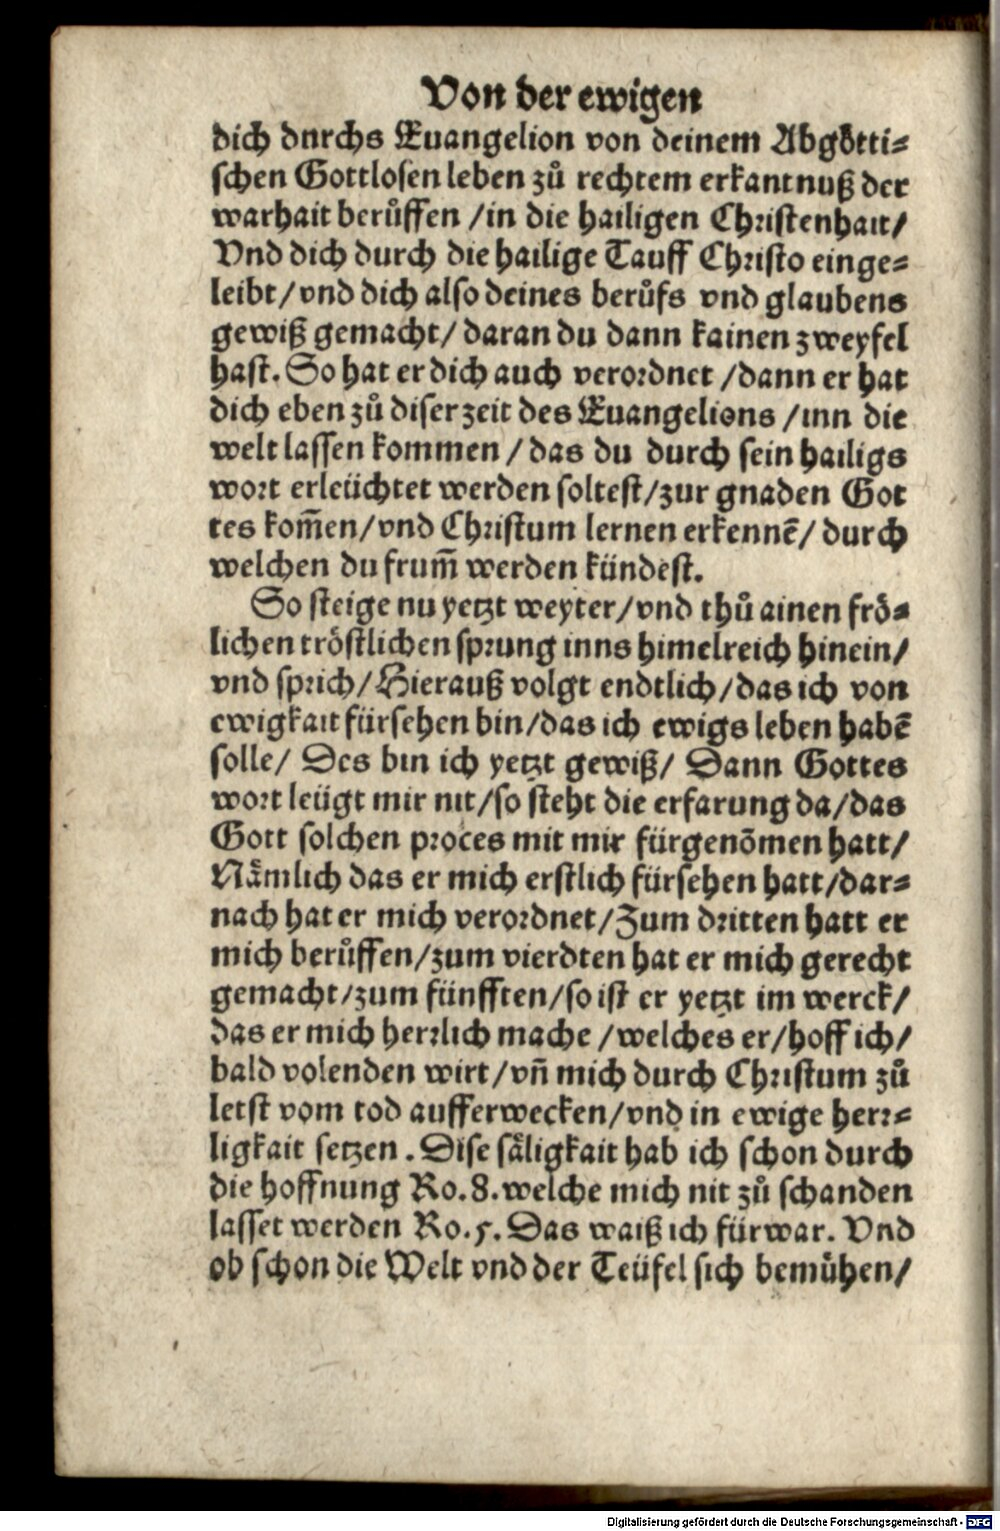 Von der ewigen
dich dnrchs Euangelion von deinem Abgötti⸗
schen Gottlosen leben zů rechtem erkantnuß der
warhait berůffen /in die hailigen Christenhait/
Vnd dich durch die hailige Tauff Christo einge⸗
leibt/vnd dich also deines berůfs vnd glaubens
gewiß gemacht/ daran du dann kainen zweyfel
hast. So hat er dich auch verordnet /dann er hat
dich eben zů diser zeit des Euangelions /inn die
welt lassen kommen / das du durch sein hailigs
wort erleüchtet werden soltest/zur gnaden Got
tes kom̃en/vnd Christum lernen erkennẽ/ durch
welchen du frum̃ werden kündest.
So steige nu yetzt weyter/vnd thů ainen frö⸗
lichen tröstlichen sprung inns himelreich hinein/
vnd sprich/Hierauß volgt endtlich/das ich von
ewigkait fürsehen bin/das ich ewigs leben habẽ
solle/ Des bin ich yetzt gewiß/ Dann Gottes
wort leügt mir nit/so steht die erfarung da/das
Gott solchen proces mit mir fürgenõmen hatt/
Nämlich das er mich erstlich fürsehen hatt/dar⸗
nach hat er mich verordnet/Zum dritten hatt er
mich berůffen/zum vierdten hat er mich gerecht
gemacht/zum fünfften/so ist er yetzt im werck/
das er mich herrlich mache /welches er/hoff ich/
bald volenden wirt/vñ mich durch Christum zů
letst vom tod aufferwecken/vnd in ewige herr⸗
ligkait setzen . Dise säligkait hab ich schon durch
die hoffnung Ro. 8. welche mich nit zů schanden
lasset werden Ro. 5. Das waiß ich fürwar. Vnd
ob schon die Welt vnd der Teüfel sich bemühen/
Digitalisierung gefördert durch die Deutsche Forschungsgemeinschaft - DFG